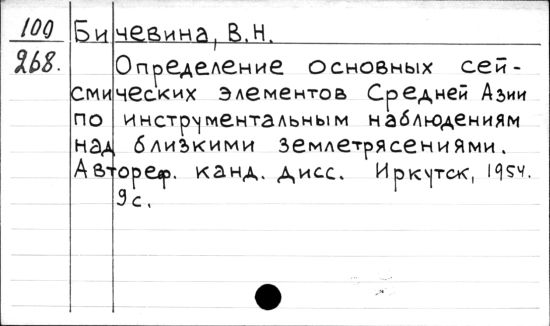 100 Бичевина, В.Н.
268. Определение основных сей-
смических элементов Средней Азии
по инструментальным наблюдениям
над близкими землетрясениями.
Автореф. канд. дисс. Иркутск, 1954.
9с.